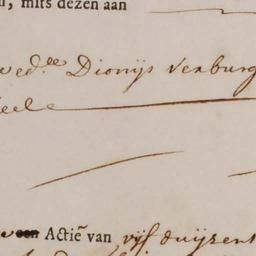 , mits dezen aan
wed.ee Dionijs Verburg
eele
een Actiē van vijf duijsent